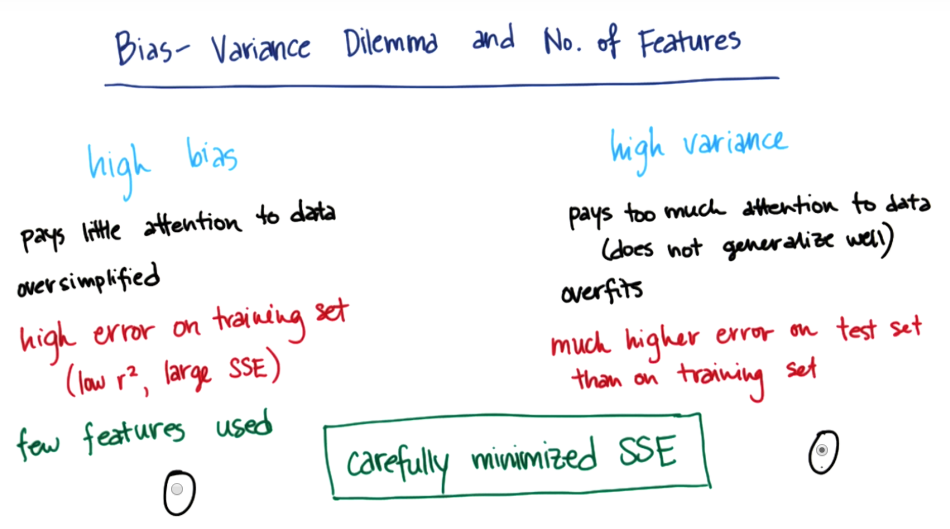 Bias-Variance Dilemma and No. of Features
high bias
pays little attention to data
oversimplified
high error on training set
(low r², large SSE)
few features used
high variance
pays too much attention to data
(does not generalize well)
overfits
much higher error on test set
than on training set
carefully minimized SSE